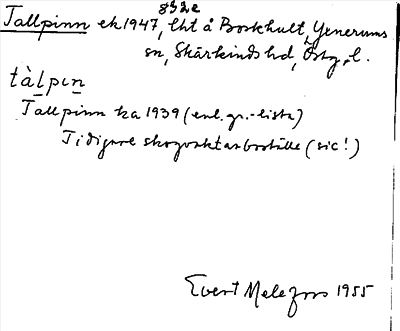 8g2e
Tallpinn ek. 1947, lht å Boskhult, Yenerums
sn, Skärkinds hd, Östg. l.
tàlpɩn
Tallpinn ka 1939 (enl. gr.-lista)
Tidigare skogvaktarboställe (sic!)
Evert Melefors 1955